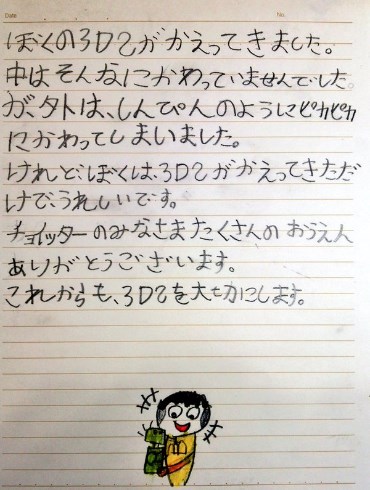 Date
No.
ぼくの3DSがかえってきました。
中はそんなにかわっていませんでした。
が、外は、しんぴんのようにピカピカ
にかわってしまいました。
けれど、ぼくは、3DSがかえってきただ
けで、うれしいです。
チョイッターのみなさまたくさんのおうえん
ありがとうございます。
これからも、3DSを大切にします。